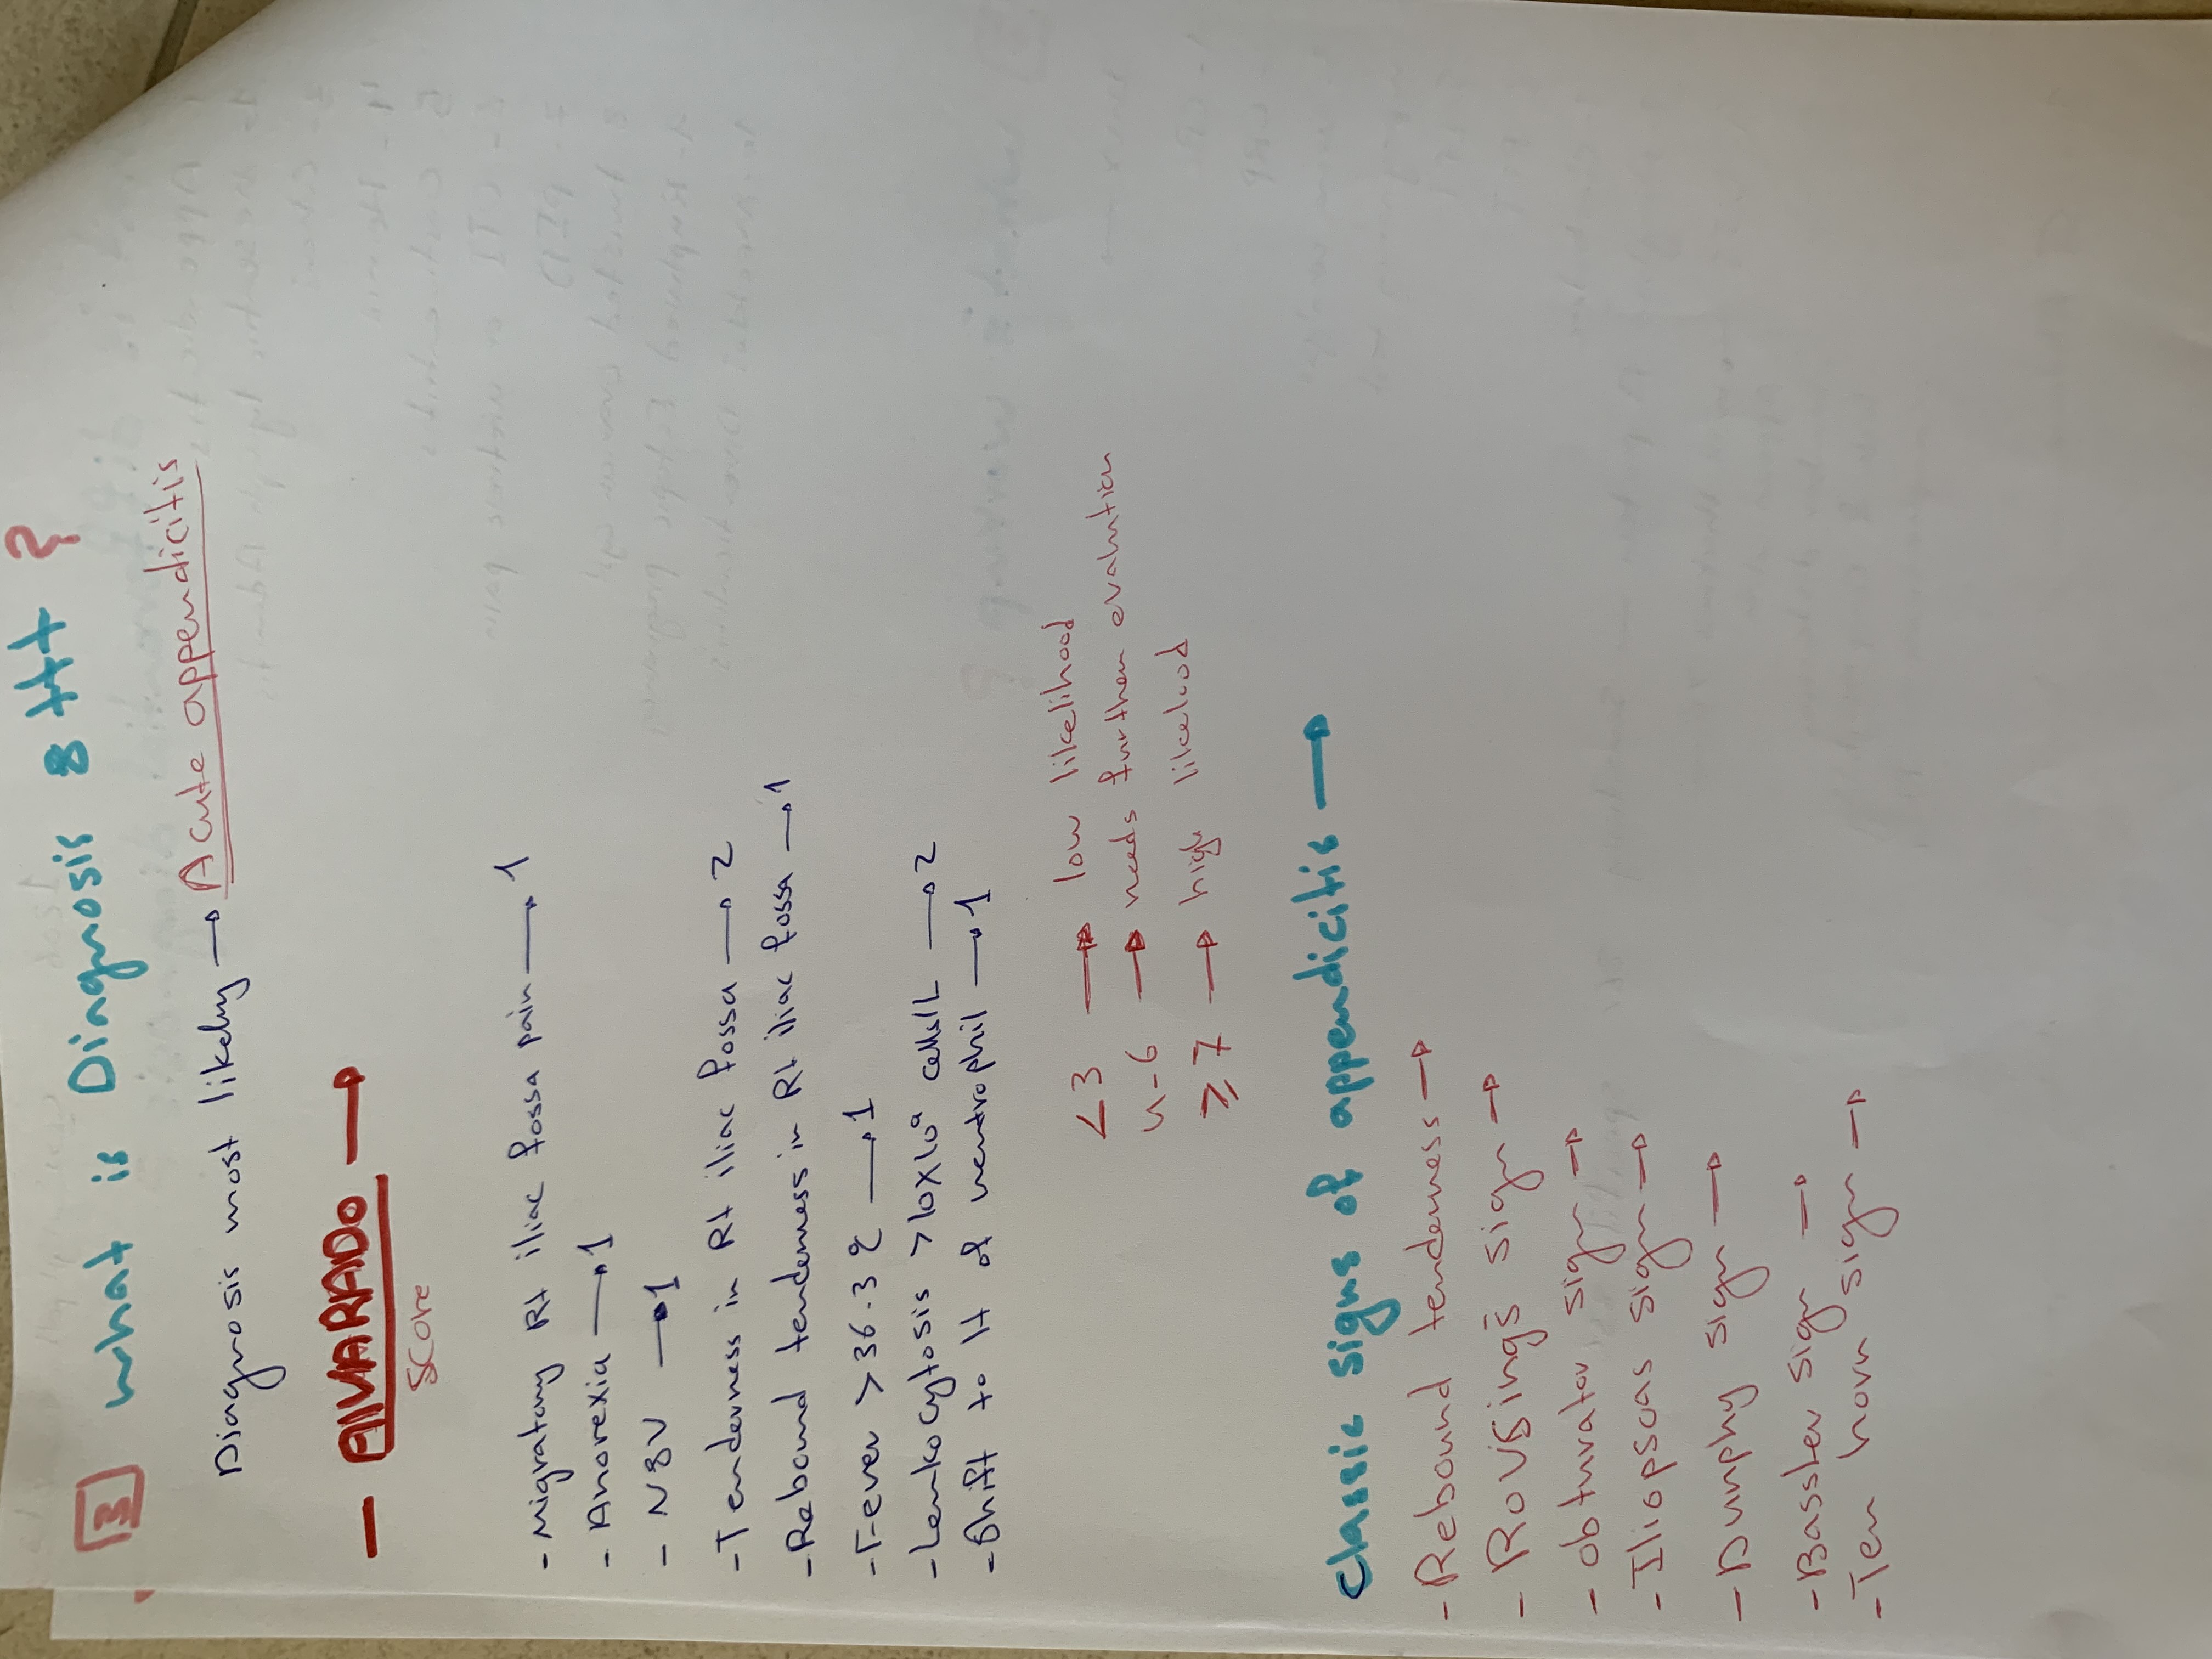 [3] what is Diagnosis & Ht ?
Diagnosis most likely → Acute appendicitis
- AlVARADO →
score
- Migratory Rt iliac fossa pain → 1
- Anorexia → 1
- N&V → 1
- Tenderness in Rt iliac fossa → 2
- Rebound tenderness in Rt iliac fossa → 1
- Fever > 36.3 → 1
- Leukocytosis > 10x10⁹ cells/L → 2
- Shift to lt of neutrophil → 1
<3 → low likelihood
4-6 → needs further evalution
≥7 → high likelood
Classic signs of appendicitis →
- Rebound tenderness →
- Rovsing's sign →
- obturator sign →
- Iliopsoas sign →
- Dunphy sign →
- Bassler sign →
- Ten horn sign →